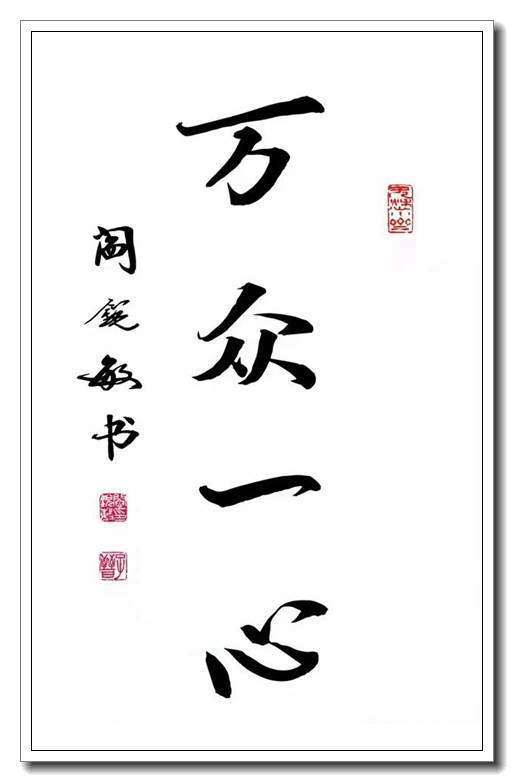 万众一心
阎锐敏书